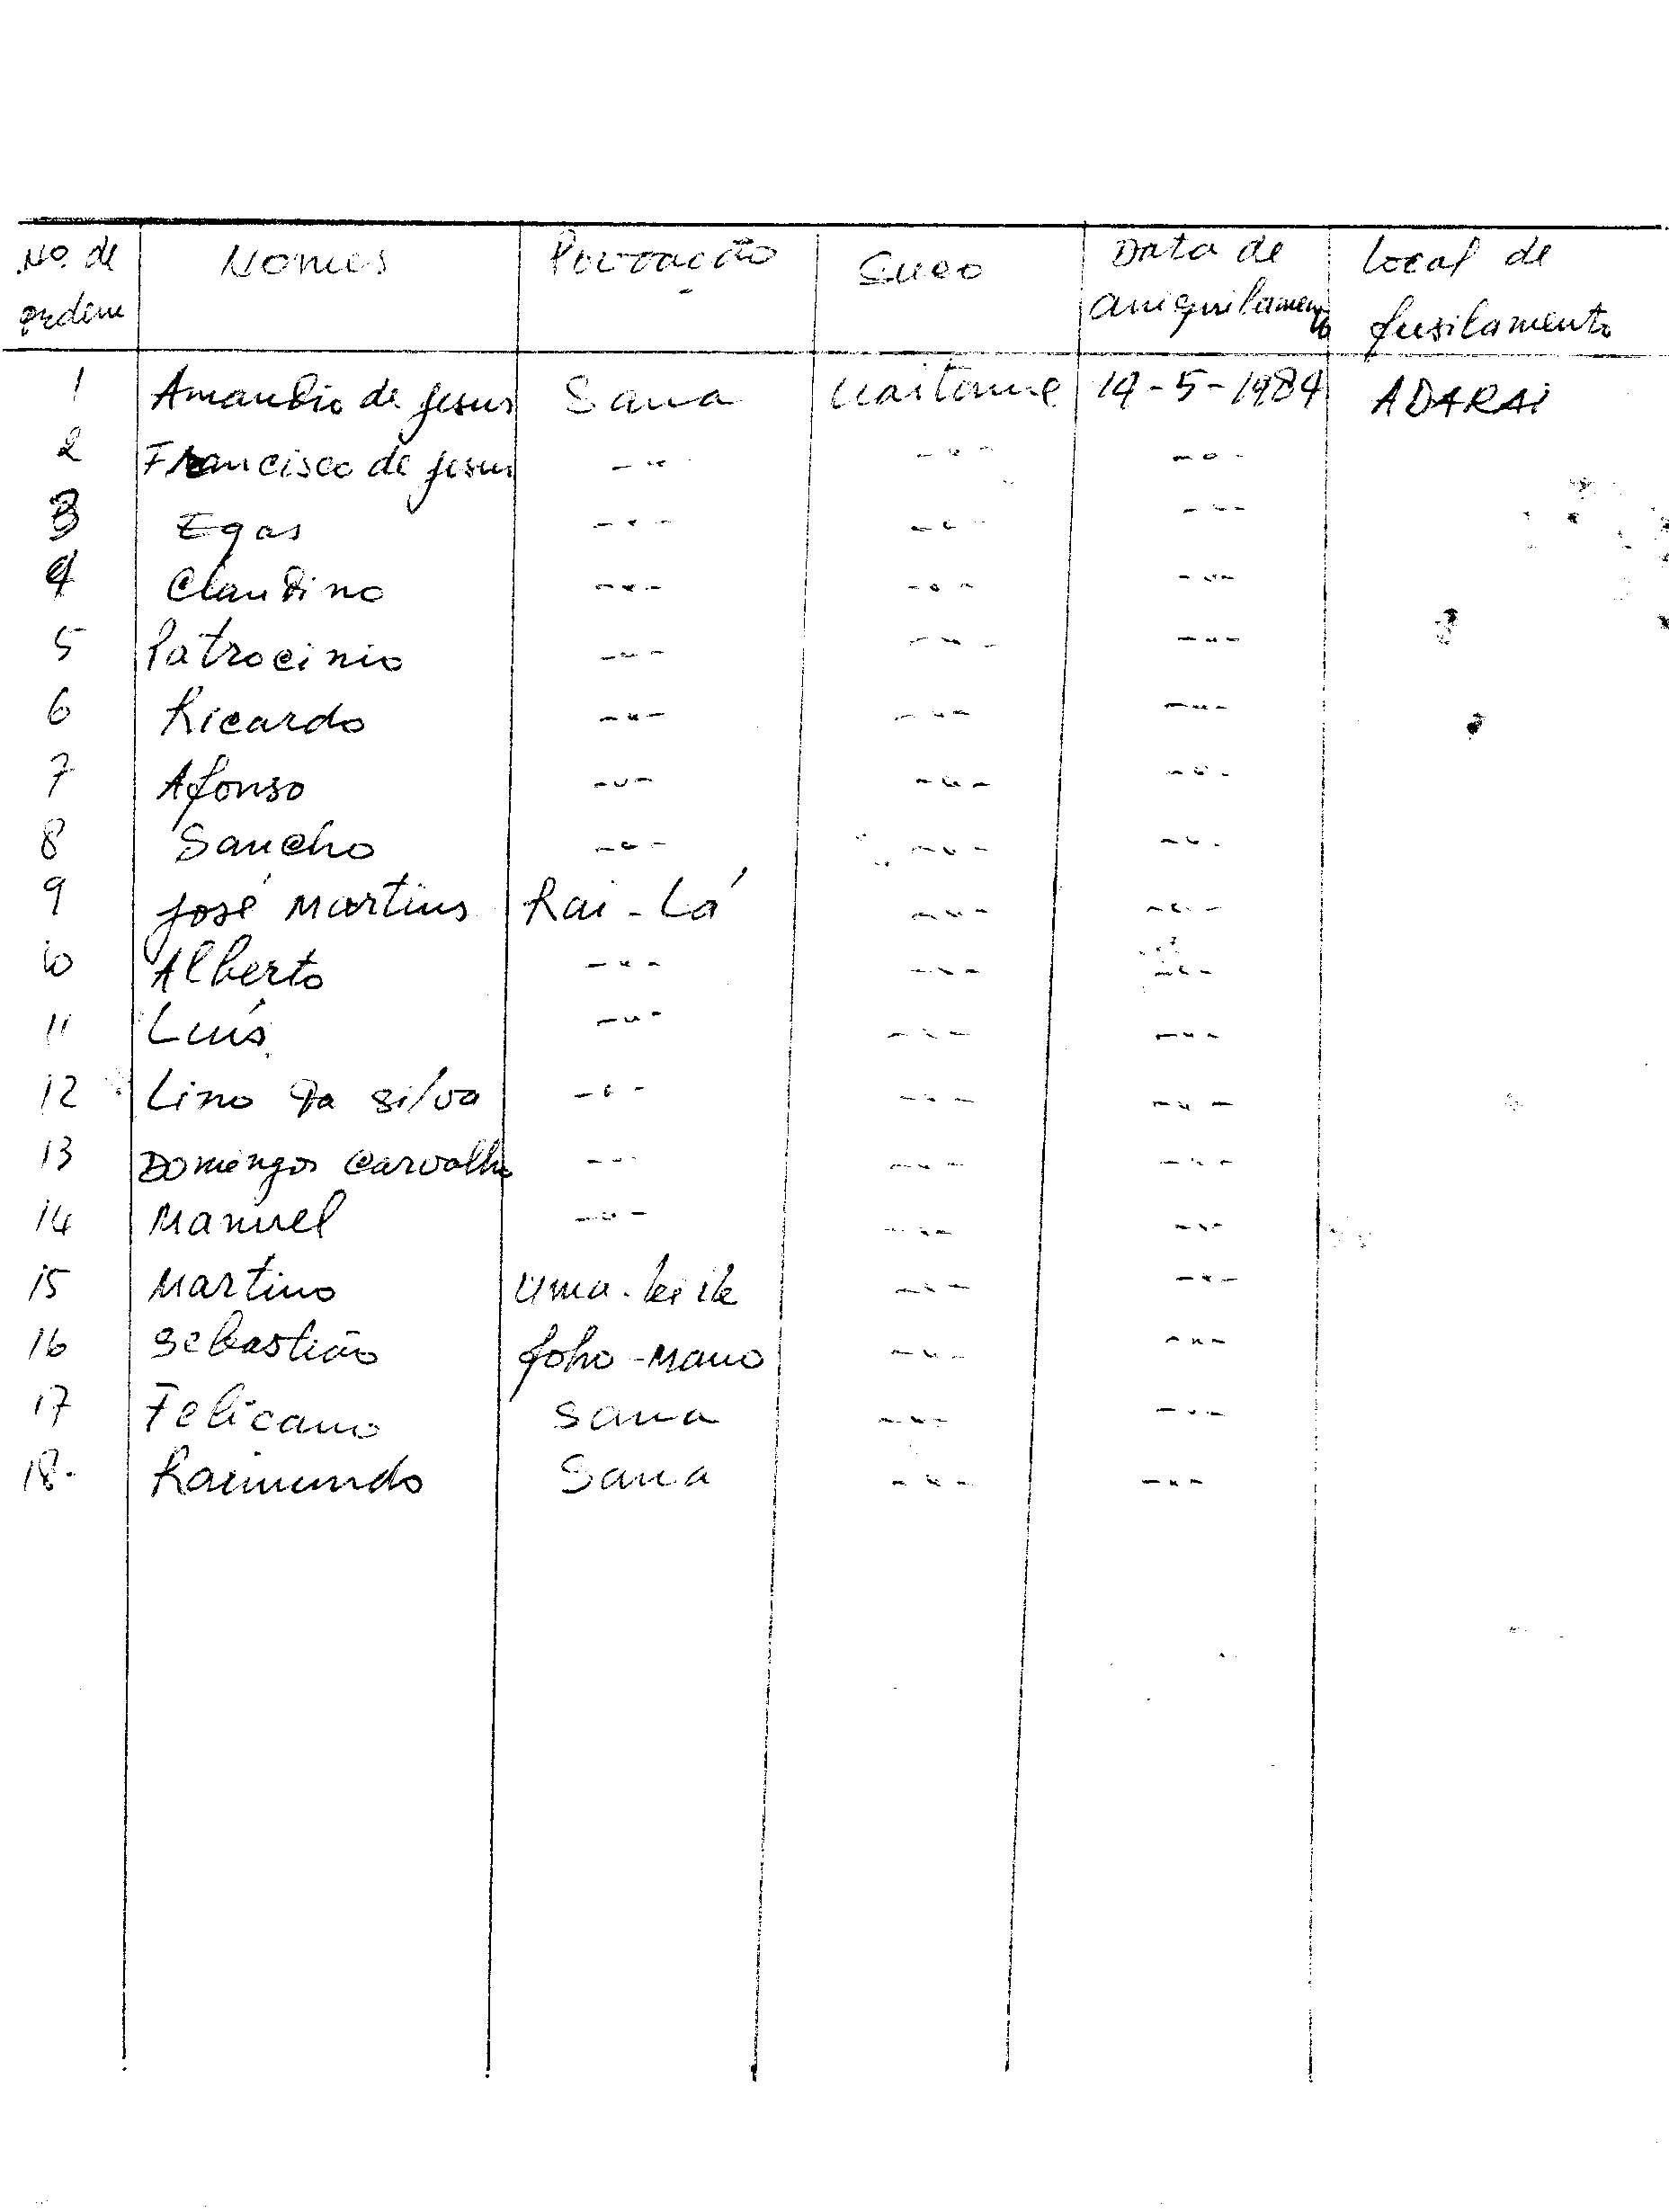 No. de ordem Nomes Povoação Suco Data de aniquilamento Local de fusilamento
1 Amandio de Jesus Sana Uaitame 14-5-1984 ADARAI
2 Francisco de Jesus - " - - " - - " -
3 Egas - " - - " - - " -
4 Claudino - " - - " - - " -
5 Patrocinio - " - - " - - " -
6 Ricardo - " - - " - - " -
7 Afonso - " - - " - - " -
8 Sancho - " - - " - - " -
9 José Martins Rai-Lá - " - - " -
10 Alberto - " - - " - - " -
11 Luís - " - - " - - " -
12 Lino da Silva - " - - " - - " -
13 Domingos Carvalho - " - - " - - " -
14 Manuel - " - - " - - " -
15 Martino Uma- - " - - " -
16 Sebastião foho-Mano - " - - " -
17 Felicano Sana - " - - " -
18. Raimundo Sana - " - - " -